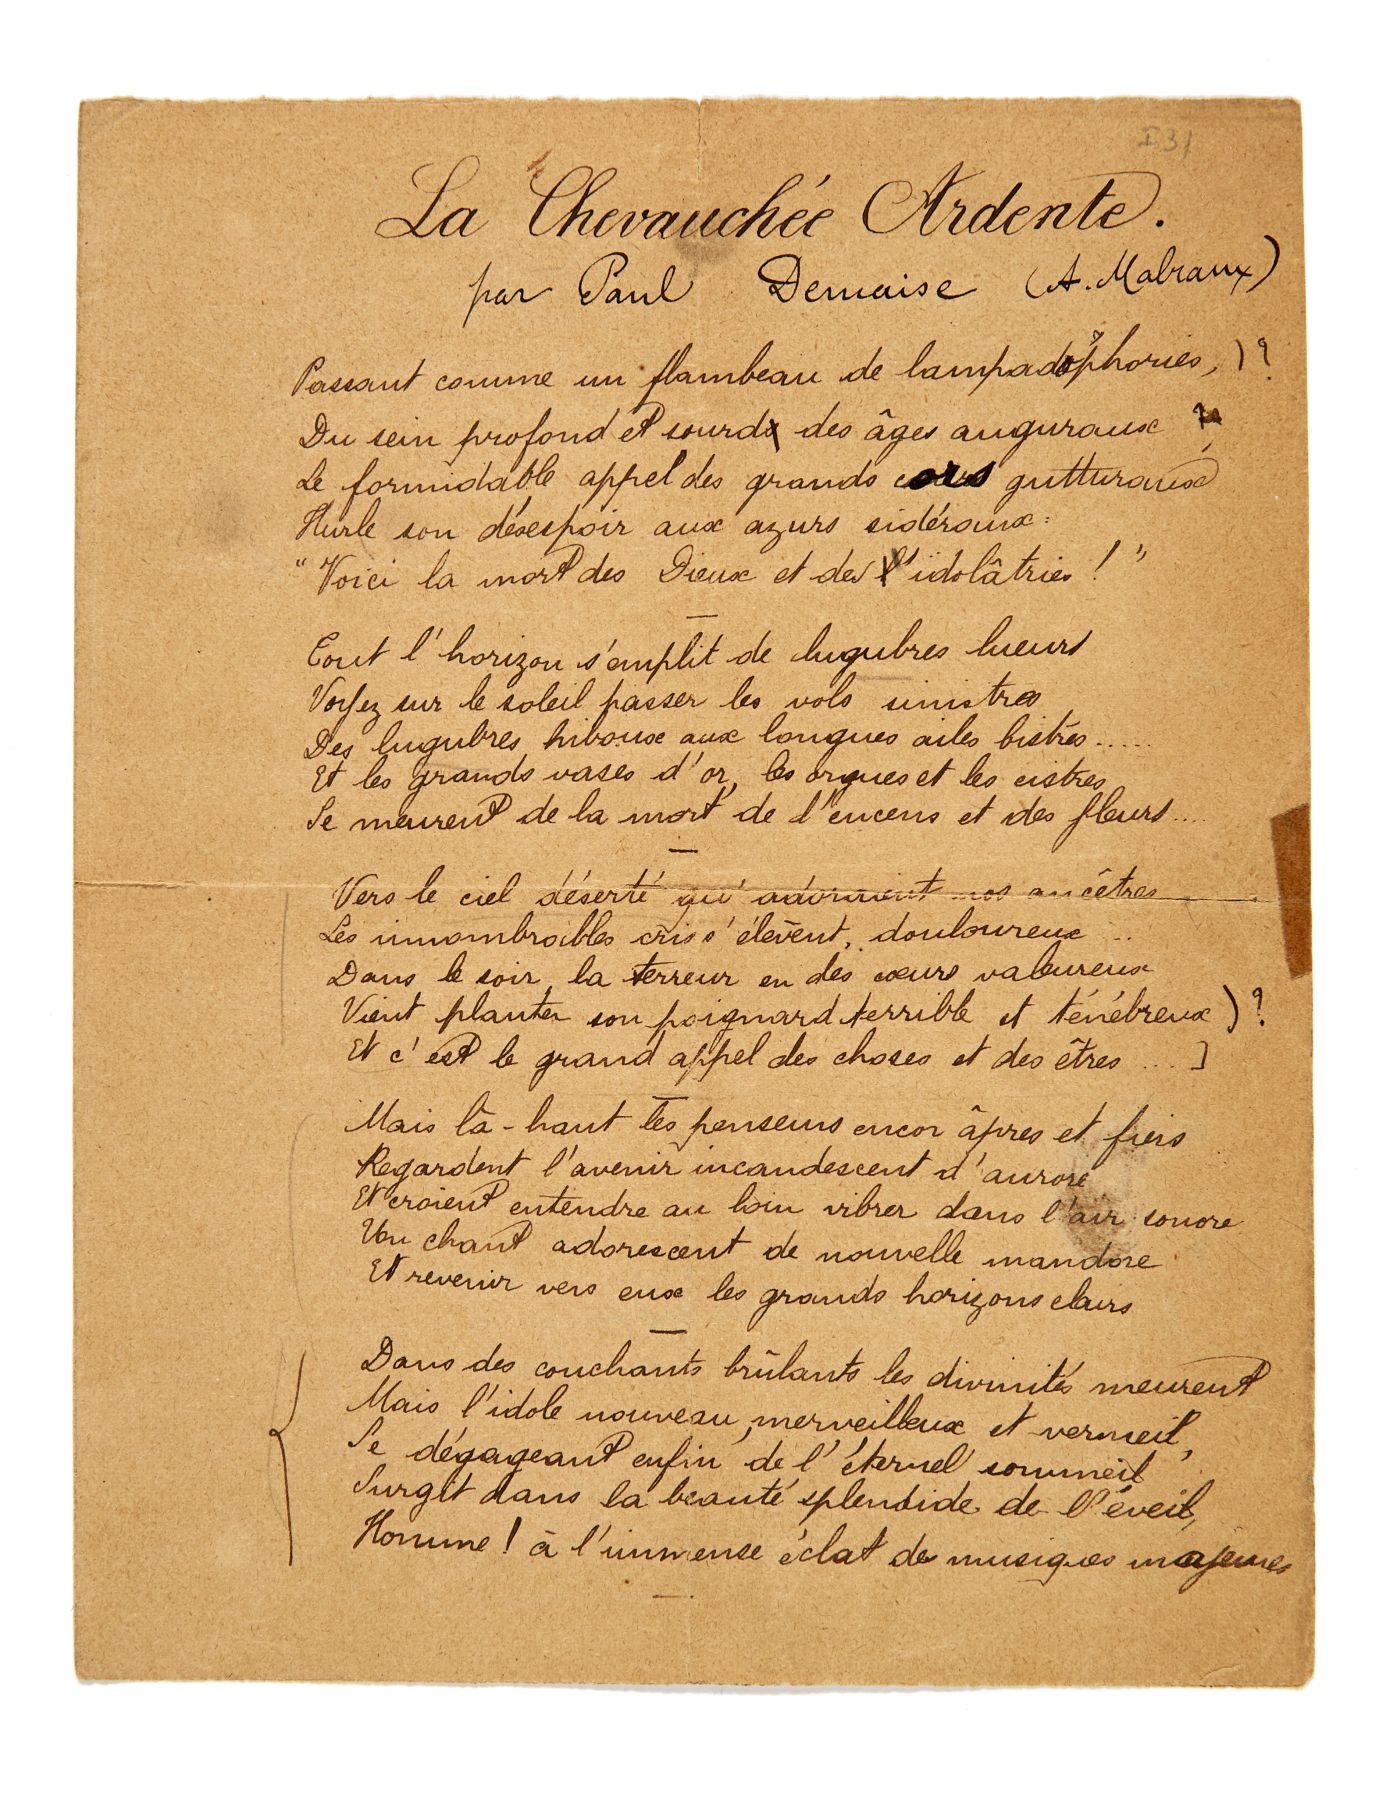 I 31
La Chevauchée Ardente.
par Paul Demaise (A. Malraux)
Passant comme un flambeau de lampadophories, ) ?
Du sein profond et sourd des âges auguraux
Le formidable appel des grands cors gutturaux
Hurle son désespoir aux azurs sidéraux :
" Voici la mort des Dieux et des idolâtries ! "
Tout l'horizon s'emplit de lugubres lueurs
Voyez sur le soleil passer les vols sinistres
Des lugubres hiboux aux longues ailes bistres......
Et les grands vases d'or, les orgues et les cistres
Se meurent de la mort de l'encens et des fleurs....
Vers le ciel déserté qu'adoraient nos ancêtres
Les innombrables cris s'élèvent, douloureux ...
Dans le soir, la terreur en des cœurs valeureux
Vient planter son poignard terrible et ténébreux ) ?
Et c'est le grand appel des choses et des êtres .... ]
Mais là-haut les penseurs encor âpres et fiers
Regardent l'avenir incandescent d'aurore
Et croient entendre au loin vibrer dans l'air sonore
Un chant adorescent de nouvelle mandore
Et revenir vers eux les grands horizons clairs
Dans des couchants brûlants les divinités meurent
Mais l'idole nouveau, merveilleux et vermeil,
Se dégageant enfin de l'éternel sommeil
Surgit dans la beauté splendide de l'éveil,
Homme ! à l'immense éclat de musiques majeures